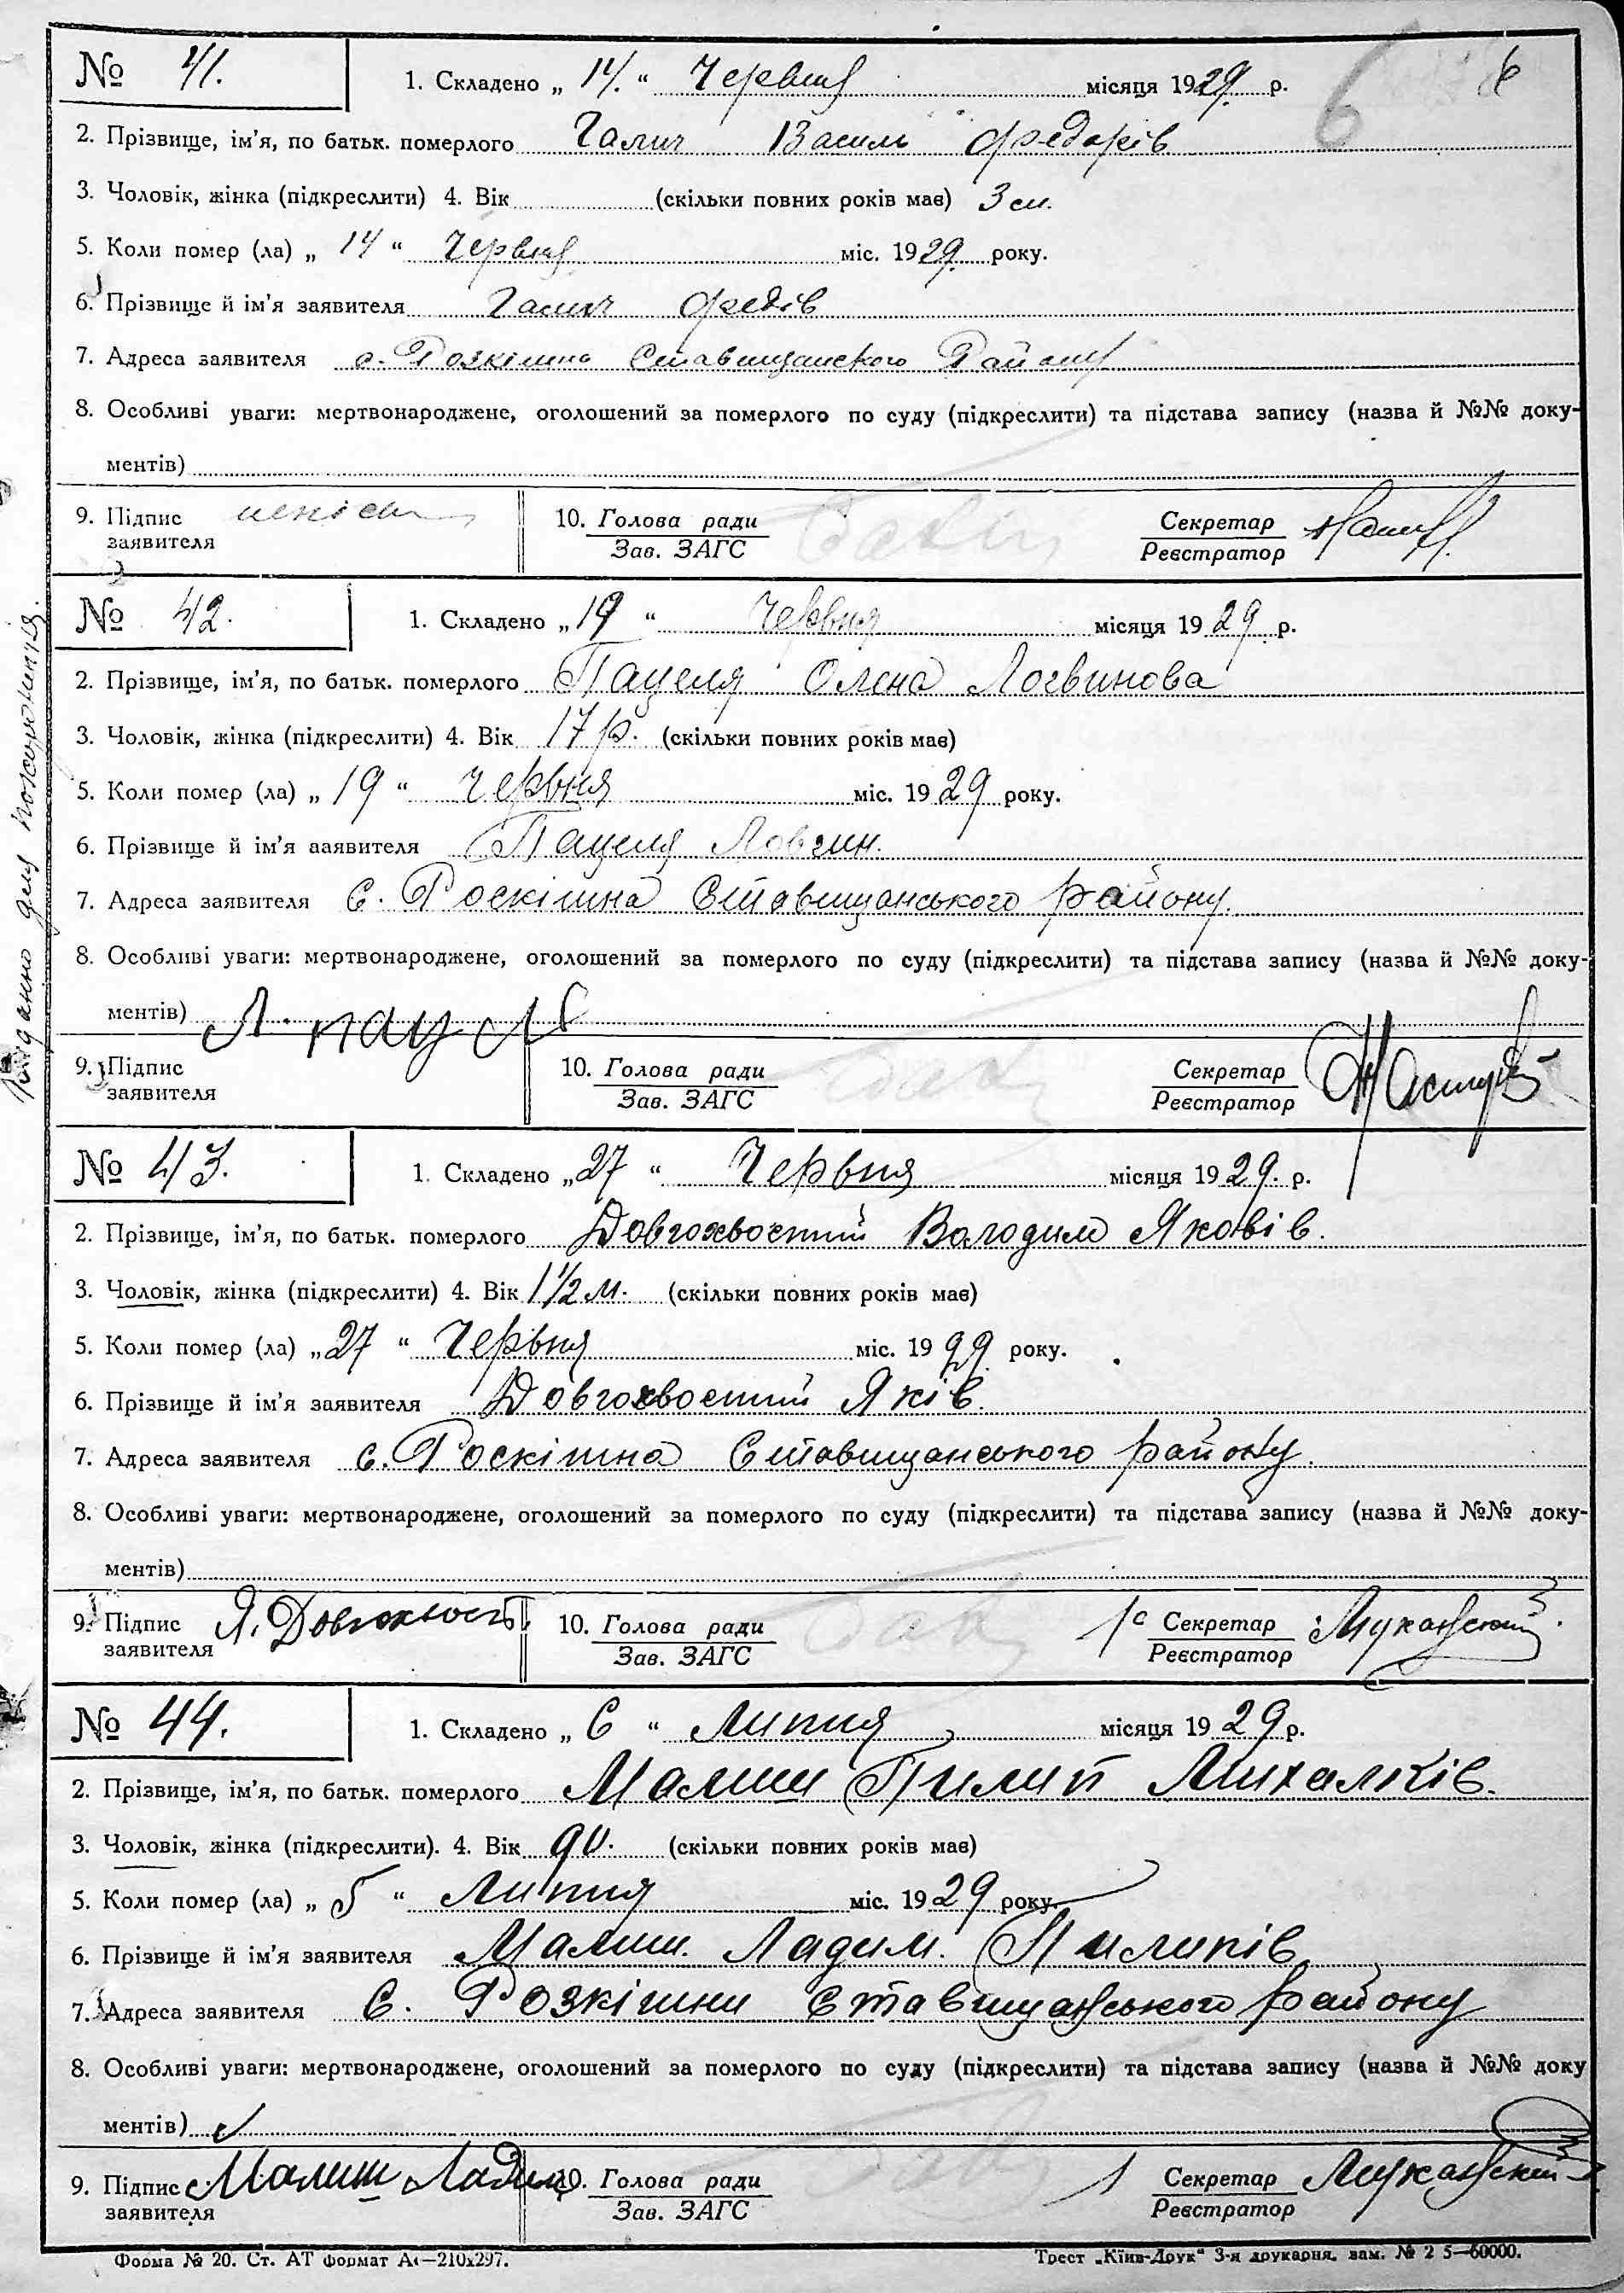 6
№ 41. 1. Складено „ 14. “ Червня місяця 1929. р.
2. Прізвище, ім’я, по батьк. померлого Галич Василь Федорків
3. Чоловік, жінка (підкреслити) 4. Вік (скільки повних років має) 3 см.
5. Коли помер (ла) „ 14 “ Червня міс. 1929. року.
6. Прізвище й ім’я заявителя Галич Федів
7. Адреса заявителя с. Розкішна Ставищанского Району
8. Особливі уваги: мертвонароджене, оголошений за померлого по суду (підкреслити) та підстава запису (назва й №№ доку-
ментів)
9. Підпис заявителя 10. Голова ради Секретар
Зав. ЗАГС Реєстратор
№ 42. 1. Складено „ 19 “ Червня місяця 1929 р.
2. Прізвище, ім’я, по батьк. померлого Пацеля Олена Логвинова
3. Чоловік, жінка (підкреслити) 4. Вік 17 р. (скільки повних років має)
5. Коли помер (ла) „ 19 “ Червня міс. 1929 року.
6. Прізвище й ім’я заявителя Пацеля Ловгин.
7. Адреса заявителя с. Роскішна Ставищанського району.
8. Особливі уваги: мертвонароджене, оголошений за померлого по суду (підкреслити) та підстава запису (назва й №№ доку-
ментів) Л. пацел
9. Підпис заявителя 10. Голова ради Секретар
Зав. ЗАГС Реєстратор
№ 43. 1. Складено „ 27 “ Червня місяця 1929. р.
2. Прізвище, ім’я, по батьк. померлого Довгохвостий Володим Яковів.
3. Чоловік, жінка (підкреслити) 4. Вік 1 1/2 м. (скільки повних років має)
5. Коли помер (ла) „ 27 “ Червня міс. 1929 року.
6. Прізвище й ім’я заявителя Довгохвостий Яків.
7. Адреса заявителя с. Роскішна Ставищанського району.
8. Особливі уваги: мертвонароджене, оголошений за померлого по суду (підкреслити) та підстава запису (назва й №№ доку-
ментів)
9. Підпис заявителя Я. Довгохвост 10. Голова ради Секретар
Зав. ЗАГС Реєстратор
№ 44. 1. Складено „ 6 “ Липня місяця 1929 р.
2. Прізвище, ім’я, по батьк. померлого Малиш Пилип Михалків.
3. Чоловік, жінка (підкреслити). 4. Вік 90. (скільки повних років має)
5. Коли помер (ла) „ 5 “ Липня міс. 1929 року.
6. Прізвище й ім’я заявителя Малиш. Ладим. Пилипів
7. Адреса заявителя С. Розкішни Ставищанського району
8. Особливі уваги: мертвонароджене, оголошений за померлого по суду (підкреслити) та підстава запису (назва й №№ доку
ментів)
9. Підпис заявителя Малиш Ладим 10. Голова ради Секретар
Зав. ЗАГС Реєстратор
Форма № 20. Ст. АТ формат А4—210x297. Трест „Київ-Друк“ 3-я друкарня. зам. № 2 5—60000.